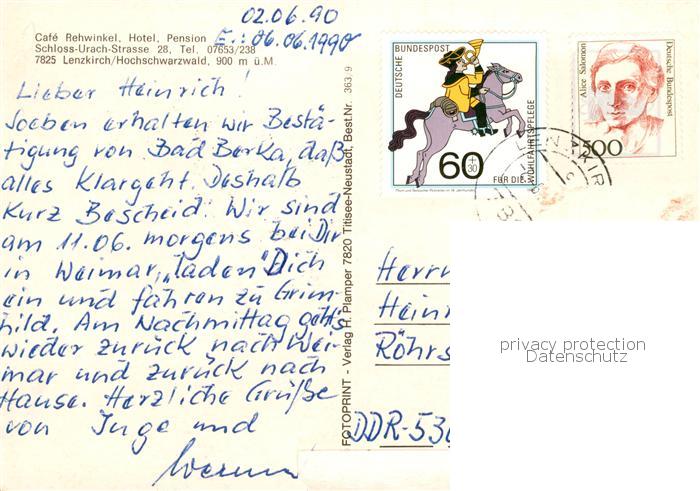 02.06.90
E.: 06.06.1990
Café Rehwinkel, Hotel, Pension
Schloss-Urach-Strasse 28, Tel. 07653/238
7825 Lenzkirch/Hochschwarzwald, 900 m ü.M.
Lieber Heinrich!
Soeben erhalten wir Bestä-
tigung von Bad Berka, daß
alles klargeht. Deshalb
kurz Bescheid: Wir sind
am 11.06. morgens bei Dir
in Weimar, "laden" Dich
ein und fahren zu Grim-
hild. Am Nachmittag geht's
wieder zurück nach Wei-
mar und zurück nach
Hause. Herzliche Grüße
von Inge und
Werner
FOTOPRINT - Verlag H. Plamper 7820 Titisee-Neustadt, Best.Nr. 363 9
DEUTSCHE BUNDESPOST
60 +30
FÜR DIE WOHLFAHRTSPFLEGE
Alice Salomon
Deutsche Bundespost
500
Herrn
Hein
Röhrs
DDR-530
privacy protection
Datenschutz